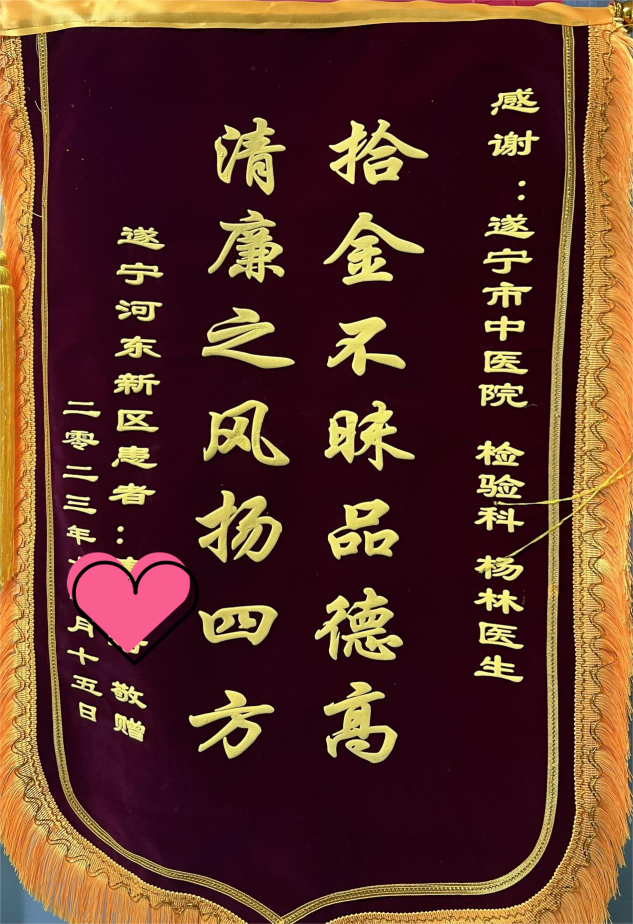 感谢：遂宁市中医院 检验科 杨林医生
拾金不昧品德高
清廉之风扬四方
遂宁河东新区患者： 敬赠
二零二三年 月十五日